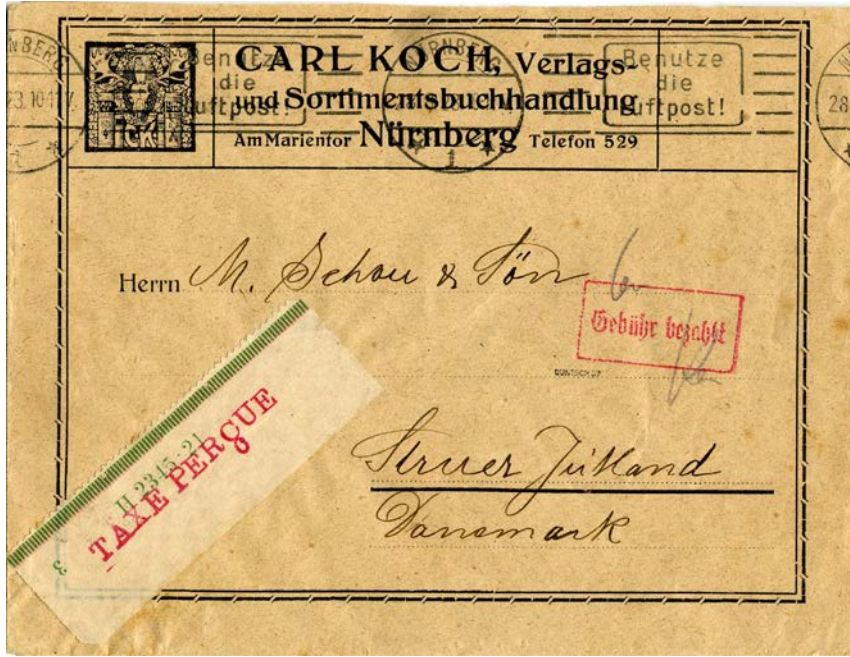 CARL KOCH, Verlags-
und Sortimentsbuchhandlung
Am Marientor Nürnberg Telefon 529
CK
NÜRNBERG
1
Benutze
die
Luftpost!
Benutze
die
Luftpost!
28
Herrn M. Schou & Sön
Gebühr bezahlt
Struer Jütland
Danemark
II 2345·21
TAXE PERÇUE
3